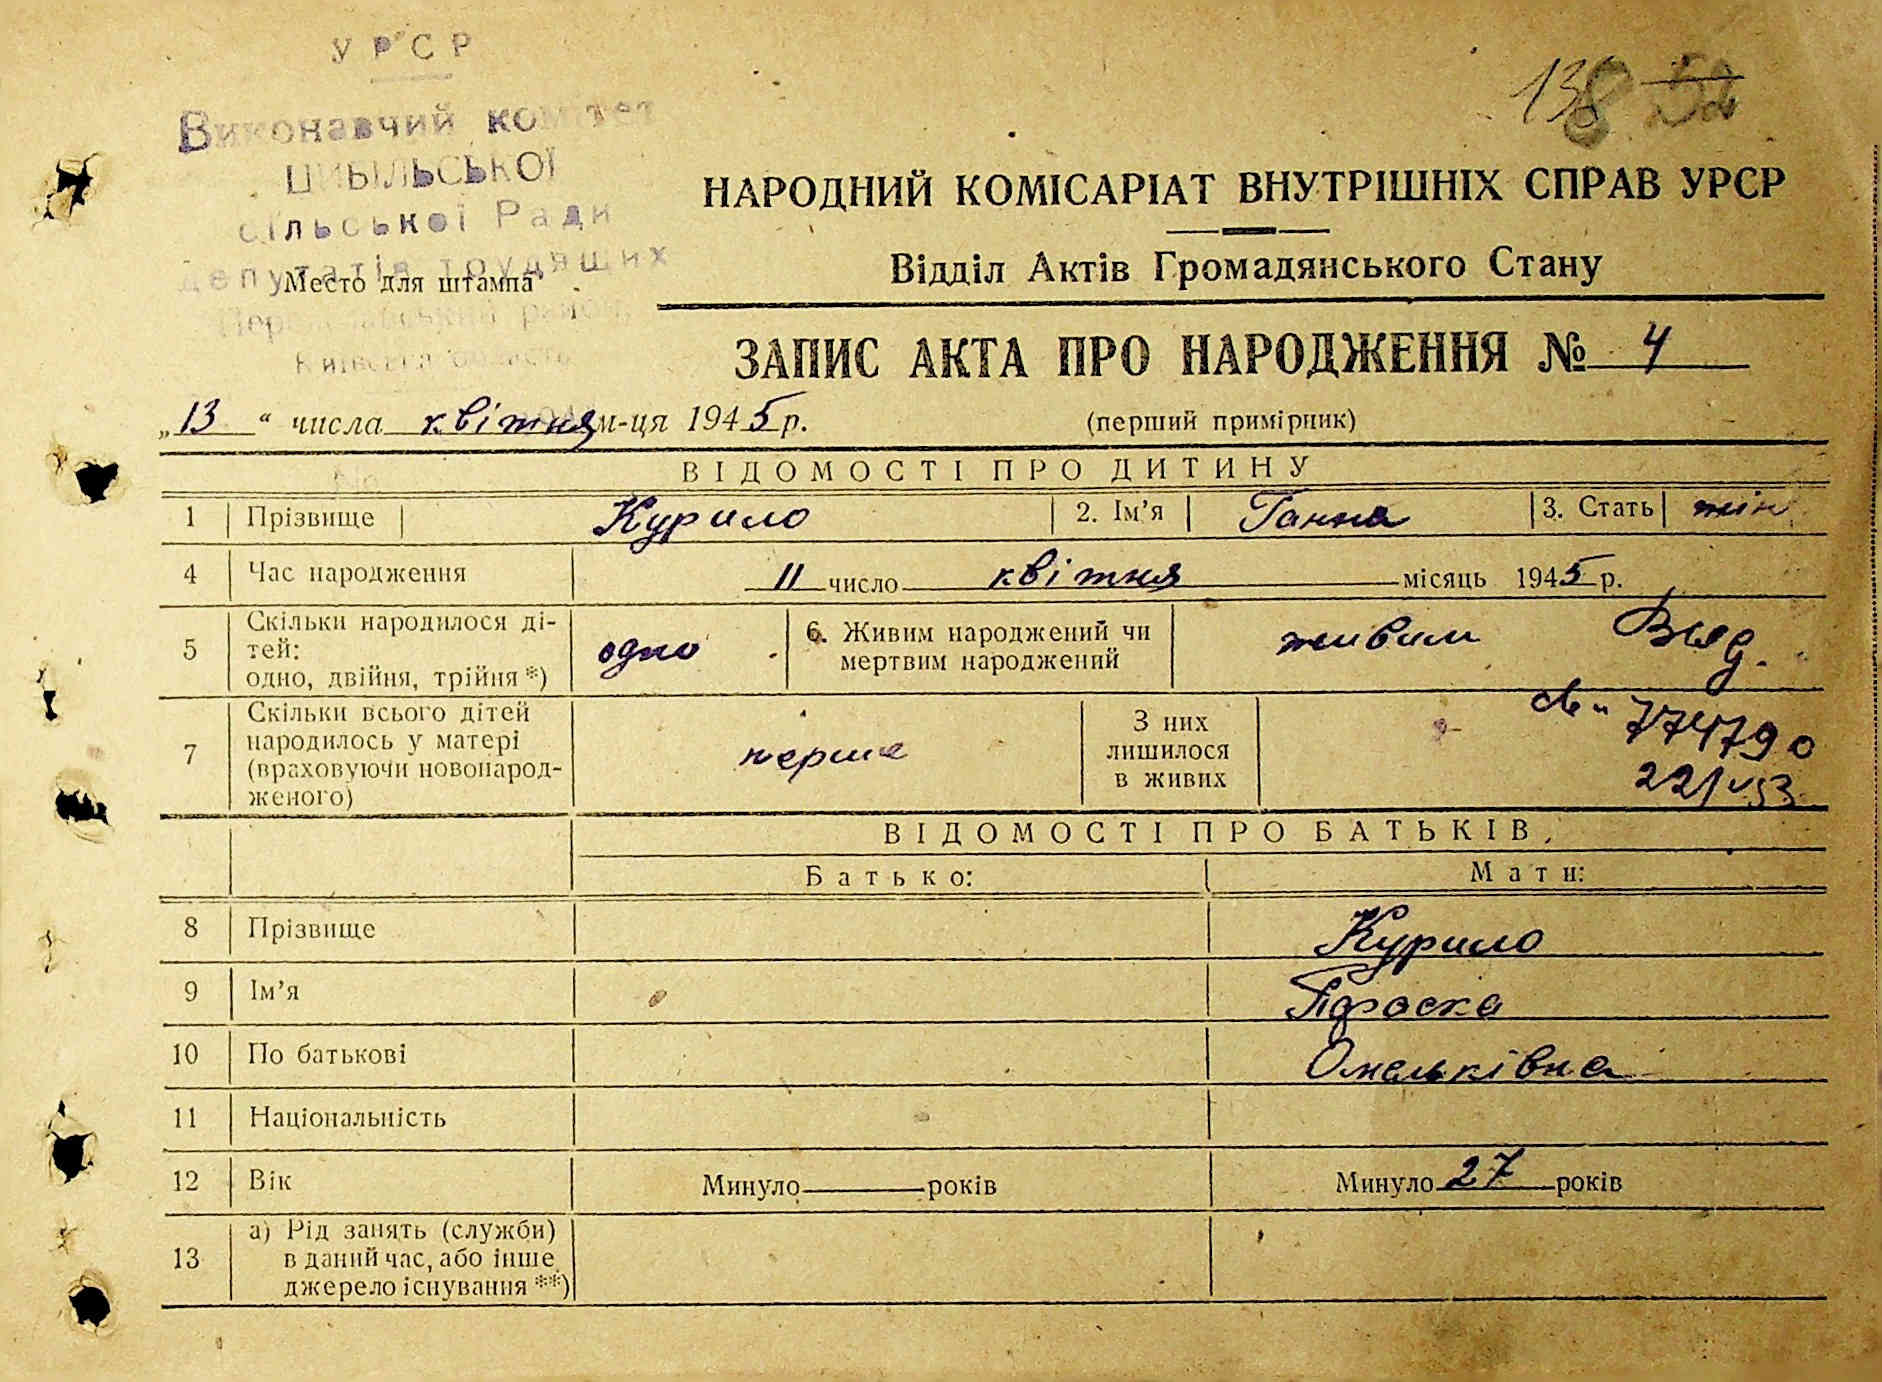 УРСР
138
Виконавчий комітет
ЦИБЛІЛЬСЬКОЇ
сільської Ради
депутатів трудящих
Место для штампа
Київська область
НАРОДНИЙ КОМІСАРІАТ ВНУТРІШНІХ СПРАВ УРСР
Відділ Актів Громадянського Стану
ЗАПИС АКТА ПРО НАРОДЖЕННЯ № 4
„13“ числа квітня м-ця 1945 р. (перший примірник)
ВІДОМОСТІ ПРО ДИТИНУ
1 Прізвище Курило 2. Ім'я Ганна 3. Стать жін
4 Час народження 11 число квітня місяць 1945 р.
5 Скільки народилося ді-
тей:
одно, двійня, трійня *)
одно
6. Живим народжений чи
мертвим народжений
живим
7 Скільки всього дітей
народилось у матері
(враховуючи новонарод-
женого)
перше
З них
лишилося
в живих
774790
ВІДОМОСТІ ПРО БАТЬКІВ
Батько: Мати:
8 Прізвище Курило
9 Ім'я Параска
10 По батькові Омельківна
11 Національність
12 Вік Минуло років Минуло 27 років
13 а) Рід занять (служби)
в даний час, або інше
джерело існування **)